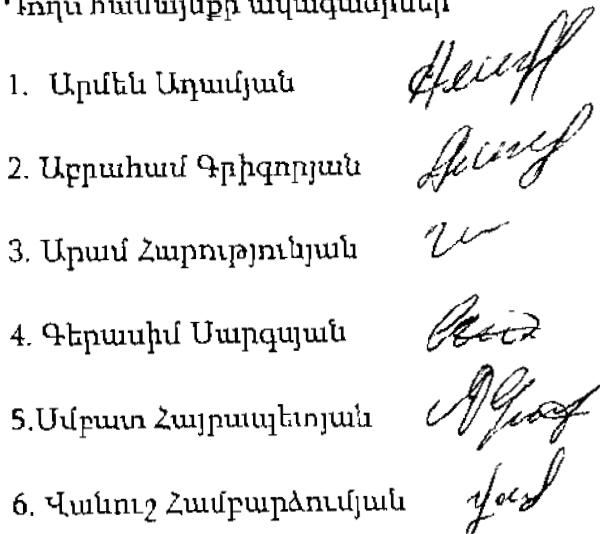 համայնքի ավագանիներ
1. Արմեն Ադամյան
2. Աբրահամ Գրիգորյան
3. Արամ Հարությունյան
4. Գերասիմ Սարգսյան
5.Սմբատ Հայրապետոյան
6. Վանուշ Համբարձումյան